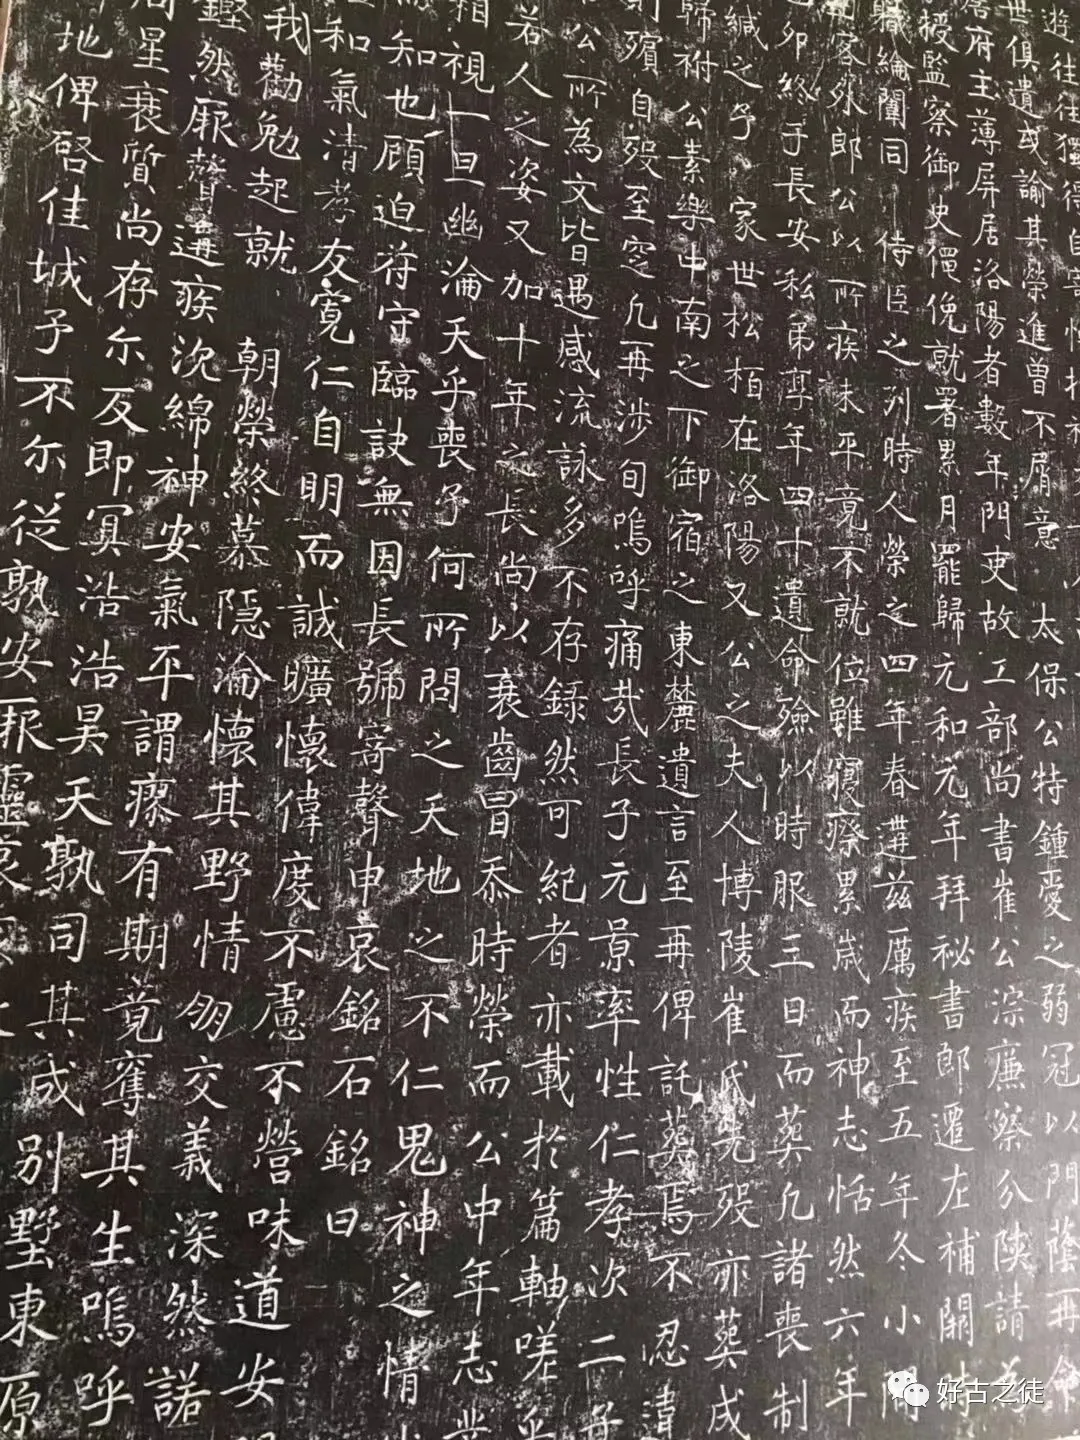 遊往往獨得自
世俱遺或諭其榮進曾不屑意 太保公特鍾愛之弱冠以門蔭再命
府主薄屏居洛陽者數年門吏故工部尚書崔公淙廉察分陝請為
授監察御史僶俛就署累月罷歸元和元年拜祕書郎遷左補闕時
職綸闈同 侍臣之列時人榮之四年春遘茲厲疾至五年冬小間
客外郎公以所疾未平竟不就位雖寢瘵累歲而神志恬然六年
卯終于長安私弟享年四十遺命殮以時服三日而葬凡諸喪制
緘之予 家世松栢在洛陽又公之夫人博陵崔氏先歿亦葬
歸祔 公素樂中南之下御宿之東麓遺言至再俾託葬焉不忍違
殯自歿至窆凡再涉旬嗚呼痛哉長子元景率性仁孝次二子
公所為文皆遇感流詠多不存錄然可紀者亦載於篇軸嗟乎
若人之姿又加十年之長尚以衰齒冒忝時榮而公中年志業
相視一旦幽淪天乎喪予何所問之天地之不仁鬼神之情
知也顧迫符守臨訣無因長號寄聲申哀銘石銘曰
和氣清孝友寬仁自明而誠曠懷偉度不慮不營味道安
我勸勉起就 朝榮終慕隱淪懷其野情朋交義深然諾
鏗然厥聲遘疾沈綿神安氣平謂瘳有期竟奪其生嗚呼
星衰質尚存尔反即冥浩浩昊天孰司其成別墅東原
地俾啓佳城予不尓從孰安